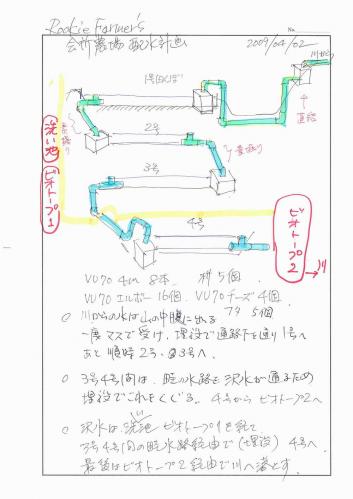 Rookie Farmer's
No.
会所農場 配水計画
2009/04/02
川から
1号田んぼ
道路
素掘り
2号
素掘り
3号
4号
洗い池
ビオトープ1
ビオトープ2
川
VU70 4m 8本、枡5個
VU70 エルボー16個、VU70チーズ4個
フタ 5個
○ 川からの水は山の中腹に出る
一度マスで受け、埋設で通路下を通り1号へ
あと順時2号、3号へ
○ 3号4号間は、時の水路を沢水が通るため
埋設でこれをくぐる。4号からビオトープ2へ
○ 沢水は、洗い池 ビオトープ1を経て
3号4号間の時水路経由で(埋設) 4号へ
最後はビオトープ2経由で川へ落とす。